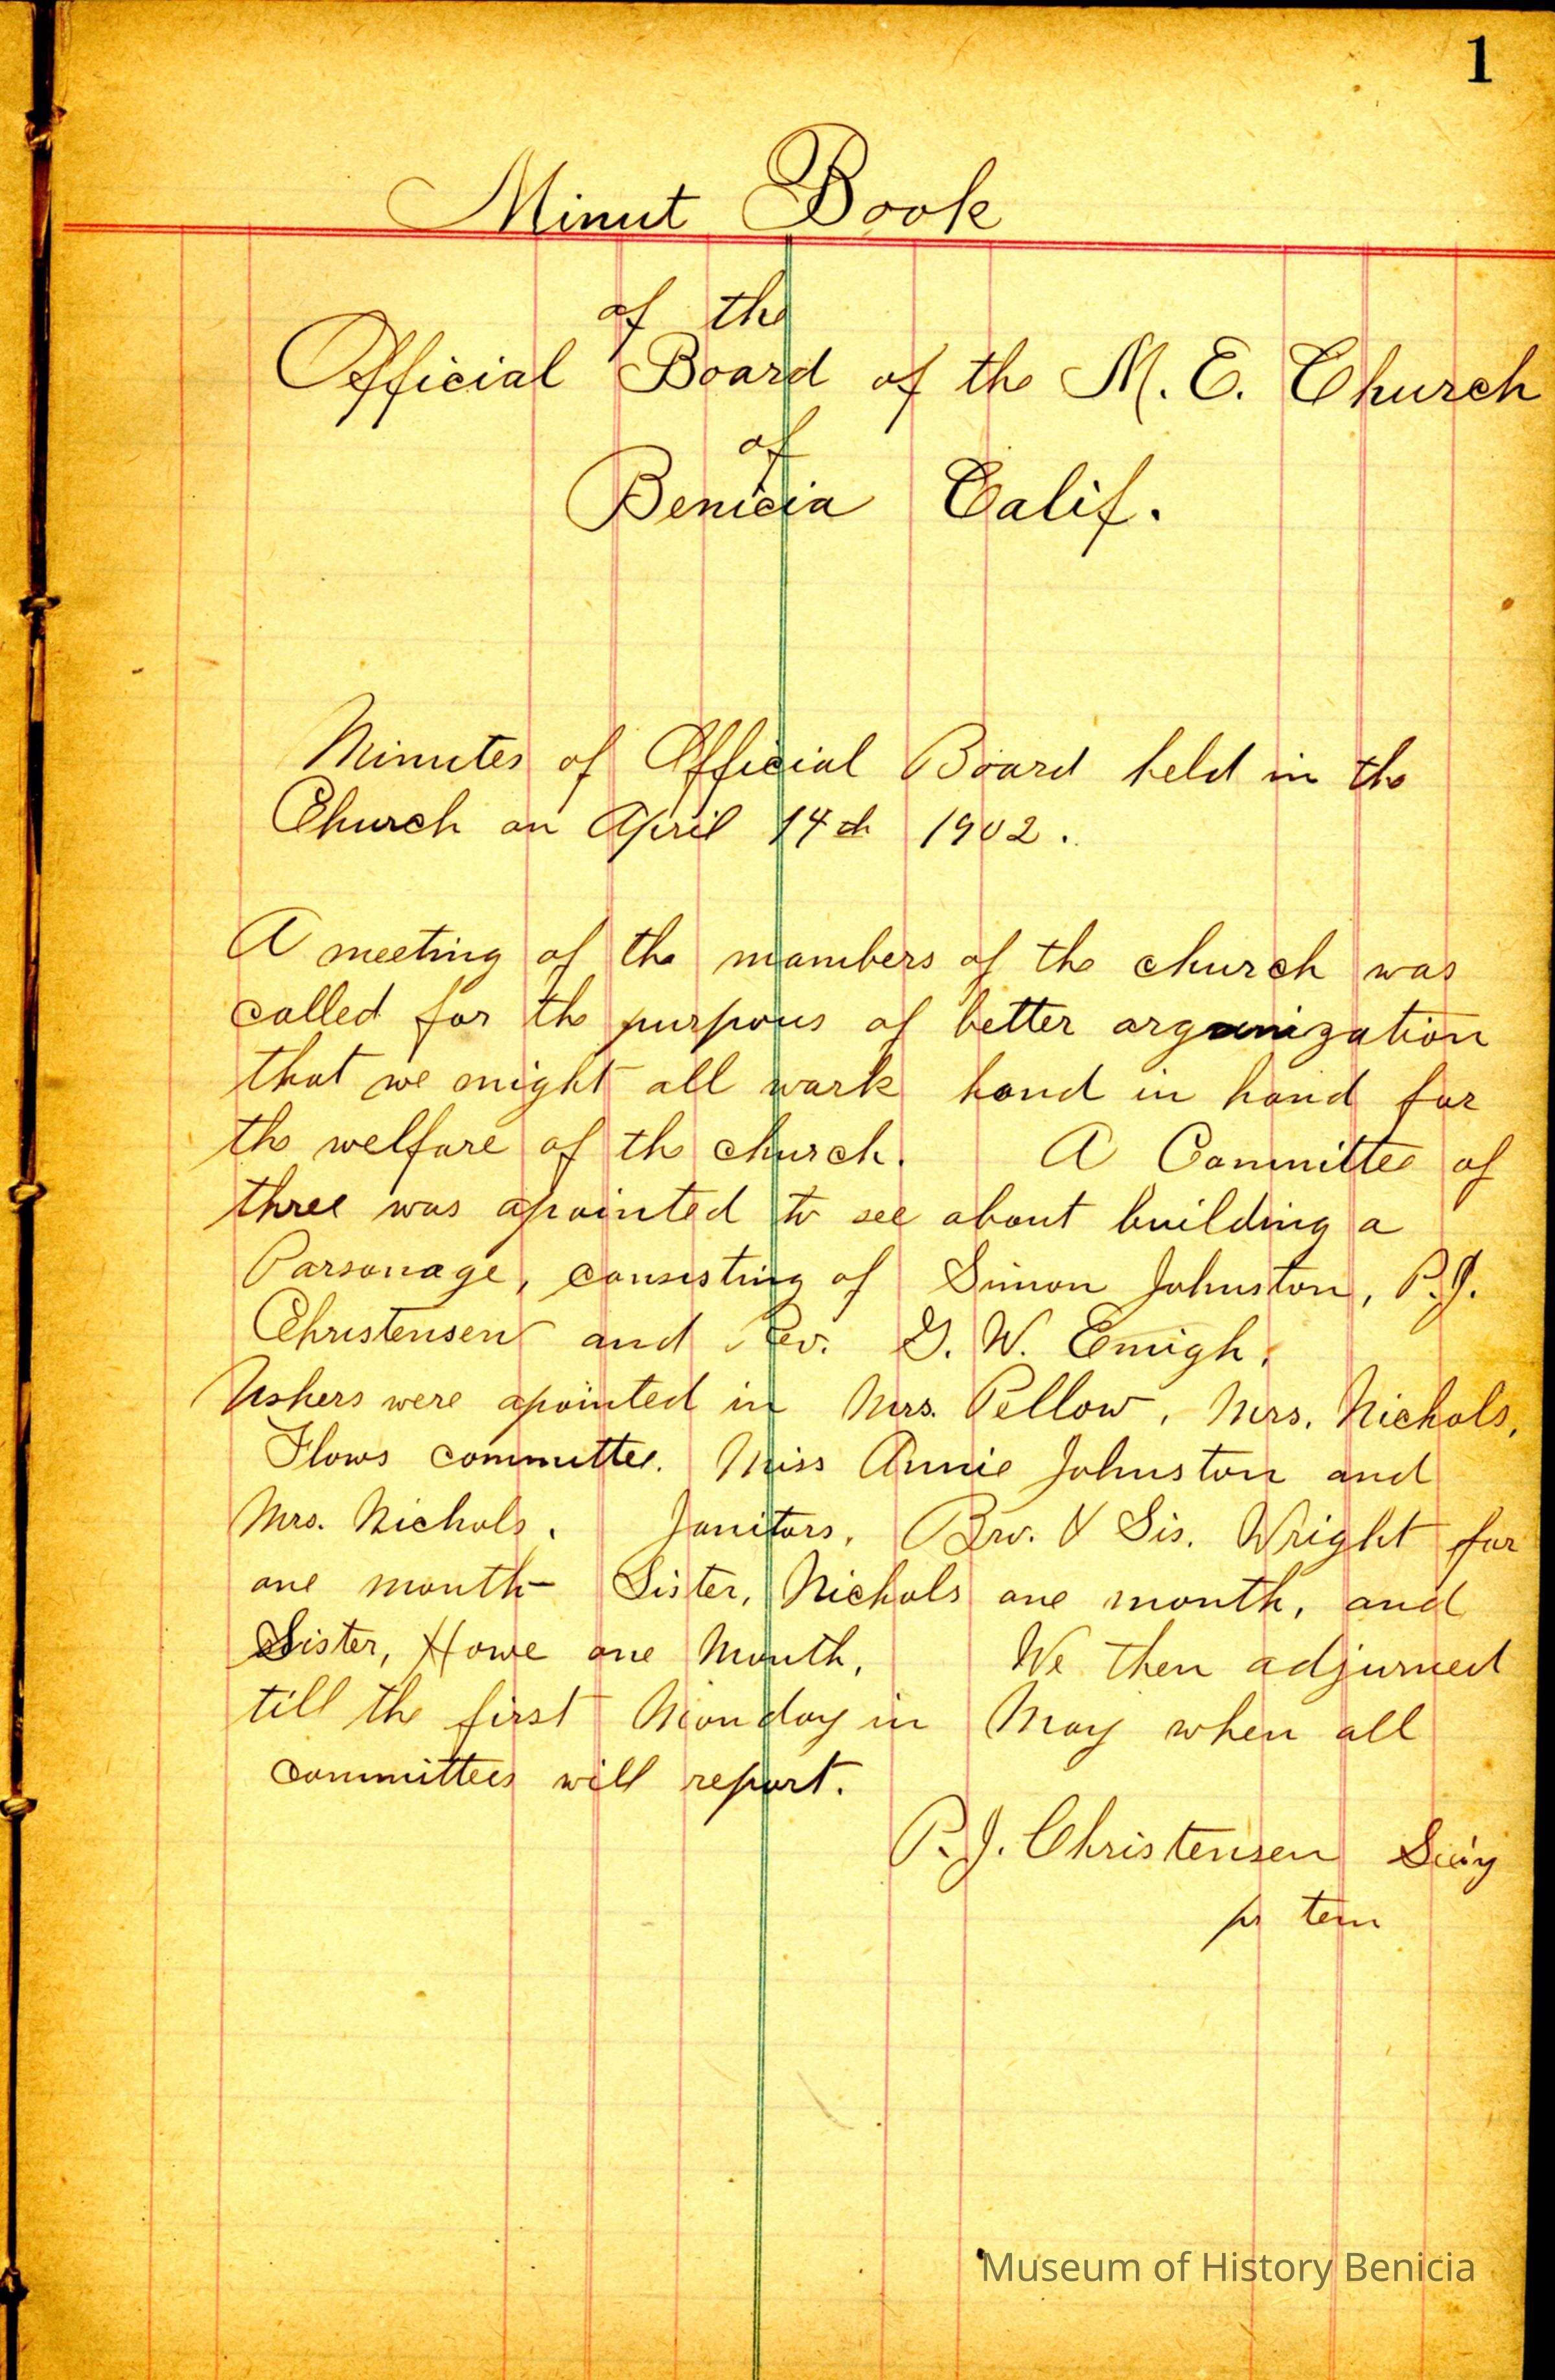 1
Minut Book
of the
Official Board of the M. E. Church
of
Benicia Calif.
Minutes of Official Board held in the
Church on April 14th 1902.
A meeting of the mambers of the church was
called for the purpous of better organization
that we might all work hand in hand for
the welfare of the church. A Committee of
three was apointed to see about building a
Parsonage, consisting of Simon Johnston, P.J.
Christensen and Rev. G. W. Emigh.
Ushers were apointed in Mrs. Pellow, Mrs. Nichols,
Flows committee. Miss Annie Johnston and
Mrs. Nichols. Janitors, Bro. & Sis. Wright for
one month- Sister, Nichols one month, and
Sister, Howe one Month, We then adjurned
till the first Monday in May when all
committees will report.
P.J. Christensen Sec'y
pr tem
Museum of History Benicia